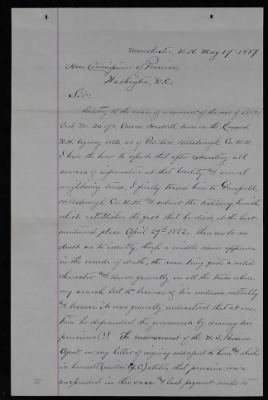 Manchester, N.H. May 17" 1887.
Hon. Commissioner of Pensions
Washington, D.C.
Sir:
Relating to the name of a survivor of the war of 1812,
Cert. No. 20.172. Case on the Concord
N.H. Agency, as of Hillsborough Co. N.H.
I have the honor to report that after exhausting all
sources of information at that locality & several
neighboring towns, I finally traced him to Greenfield,
Hillsborough Co. N.H. & submit the testimony herewith
which establishes the fact that he died at the last
mentioned place April 29th 1882. There is no
doubt as to identity, though a middle name appears
in the records of death, the man being quite a noted
character & known generally in all the towns where
my search led to because of his
& because it was generally understood that at one
time he defrauded the government by drawing two
pensions(?) The endorsement of the U.S. Pension
Agent on my letter of inquiry addressed to him & which
is herewith states that pension was
suspended in this case & last payment made to